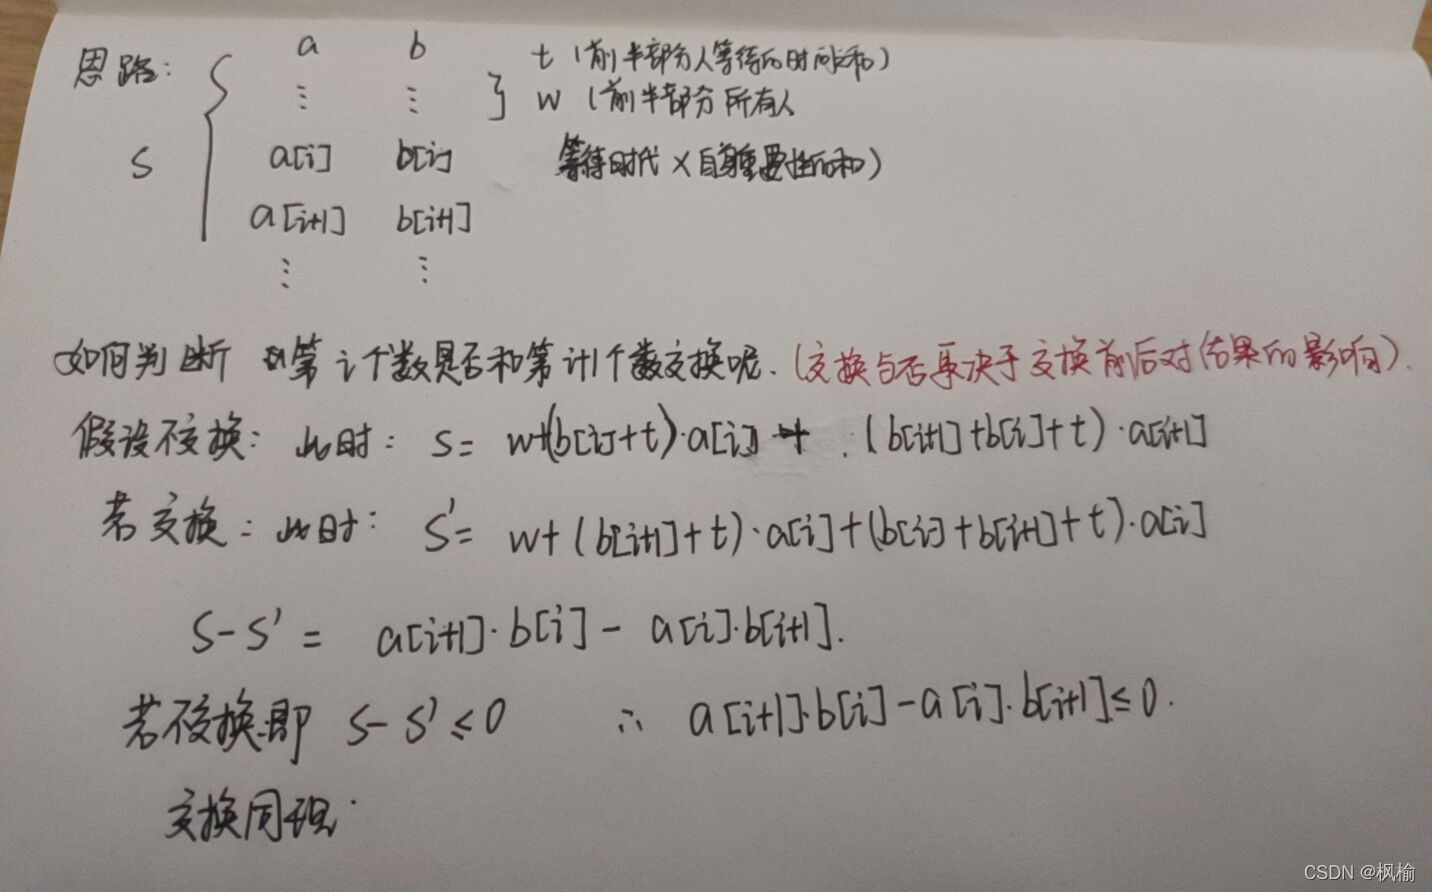 思路：
a b t（前半部分人等待的时间总和）
⋮ ⋮ w（前半部分所有人
S a[i] b[i] 等待时代×自身重要性的和）
a[i+1] b[i+1]
⋮ ⋮
如何判断 第i个数是否和第i+1个数交换呢.（交换与否取决于交换前后对结果的影响）.
假设不交换：此时：S= w+(b[i]+t)·a[i] + (b[i+1]+b[i]+t)·a[i+1]
若交换：此时：S'= w+(b[i+1]+t)·a[i]+(b[i]+b[i+1]+t)·a[i]
S-S'= a[i+1]·b[i]- a[i]·b[i+1].
若不交换.即 S-S'≤0 ∴ a[i+1]·b[i]-a[i]·b[i+1]≤0.
交换同理.
CSDN @枫榆